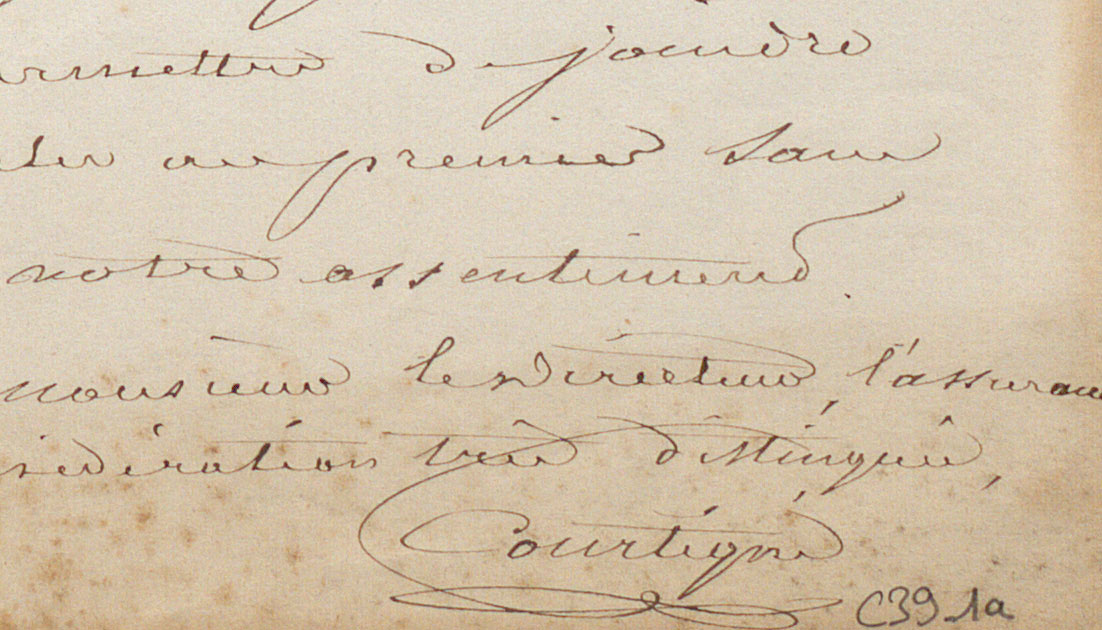 ermettre de joindre
au premier sans
votre assentiment.
monsieur le directeur, l'assuran
sidération très distinguée,
Courtigné
C39 1a